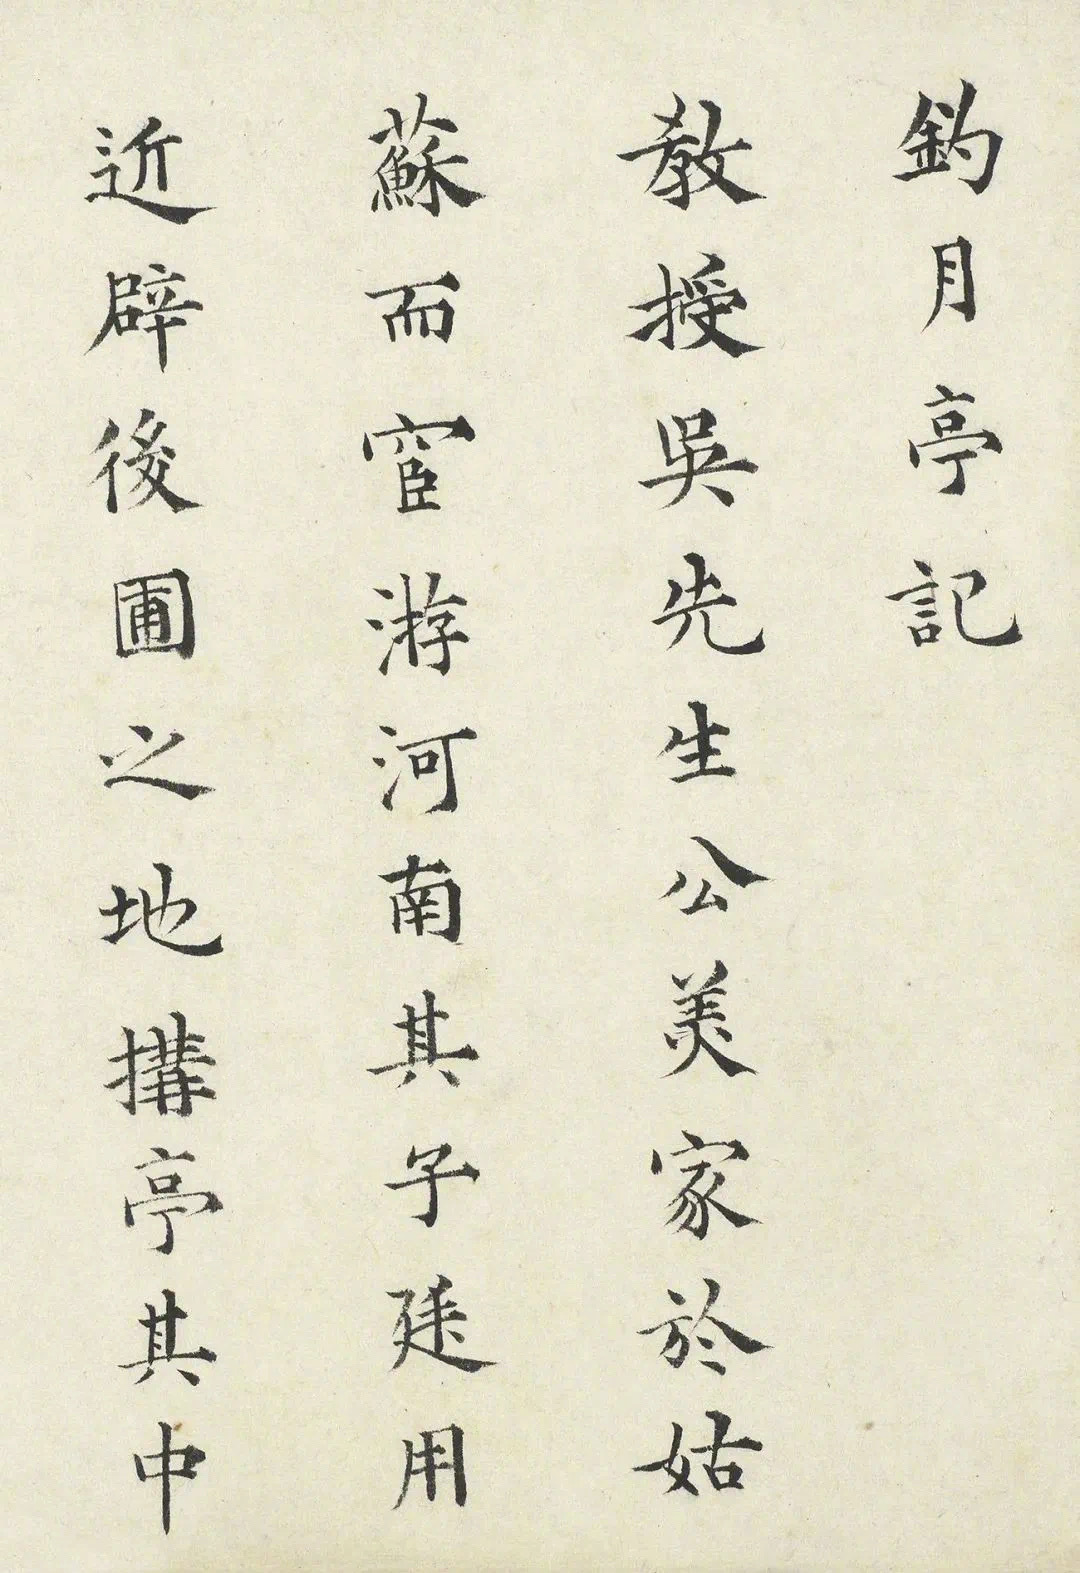 釣月亭記
教授吳先生公美家於姑
蘇而宦游河南其子廷用
近辟後圃之地搆亭其中